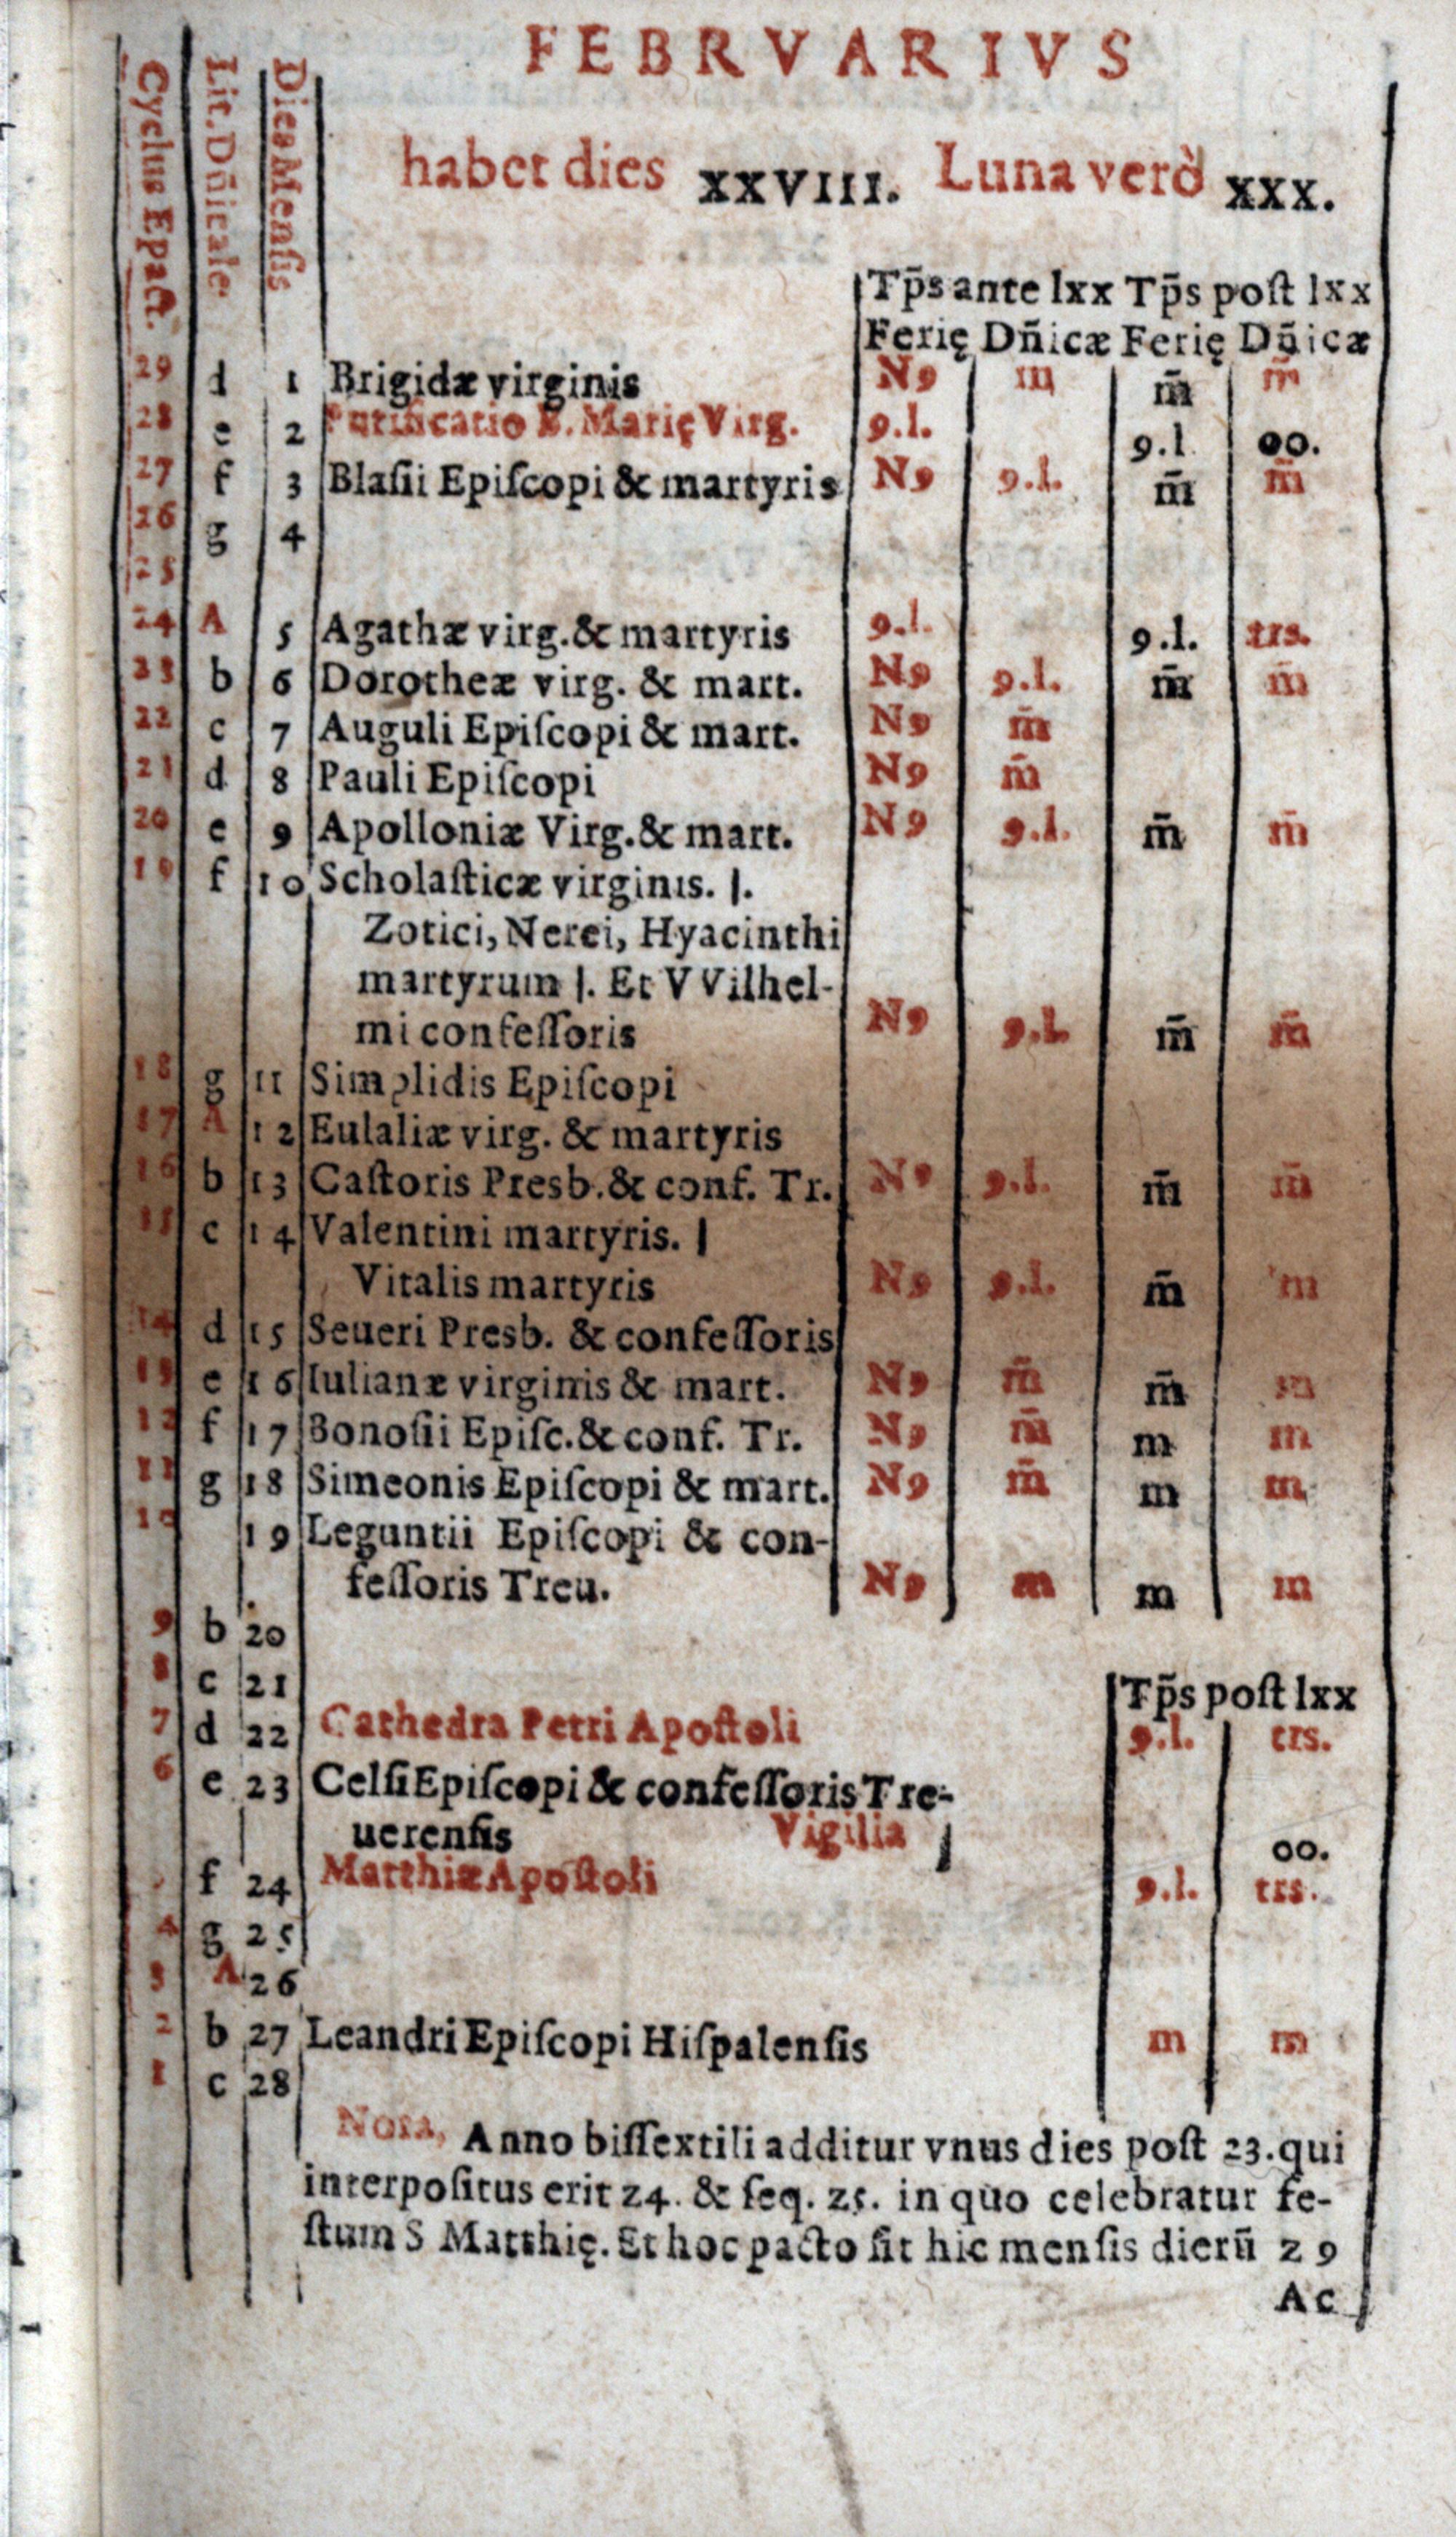 FEBRVARIVS
Cyclus Epact.
Lit. Dñicale.
Dies Menſis
habet dies XXVIII. Luna verò XXX.
Tp̄s ante lxx Tp̄s poſt lxx
Ferię Dñicæ Ferię Dñicæ
29 d 1 Brigidæ virginis N9 m m̄ m̄
28 e 2 Purificatio B. Marię Virg. 9.l. 9.l oo.
27 f 3 Blaſii Epiſcopi & martyris N9 9.l. m̄ m̄
26 g 4
25
24 A 5 Agathæ virg. & martyris 9.l. 9.l. trs.
23 b 6 Dorotheæ virg. & mart. N9 9.l. m̄ m̄
22 c 7 Auguli Epiſcopi & mart. N9 m̄
21 d 8 Pauli Epiſcopi N9 m̄
20 e 9 Apolloniæ Virg. & mart. N9 9.l. m̄ m̄
19 f 10 Scholaſticæ virginis. |.
Zotici, Nerei, Hyacinthi
martyrum |. Et VVilhel-
mi confeſſoris N9 9.l. m̄ m̄
18 g 11 Simplidis Epiſcopi
17 A 12 Eulaliæ virg. & martyris
16 b 13 Caſtoris Presb. & conf. Tr. N9 9.l. m̄ m̄
15 c 14 Valentini martyris. |
Vitalis martyris N9 9.l. m̄ m
14 d 15 Seueri Presb. & confeſſoris
13 e 16 Iulianæ virginis & mart. N9 m̄ m̄ m
12 f 17 Bonoſii Epiſc. & conf. Tr. N9 m̄ m m
11 g 18 Simeonis Epiſcopi & mart. N9 m̄ m m
10 19 Leguntii Epiſcopi & con-
feſſoris Treu. N9 m m m
9 b 20
8 c 21
Tp̄s poſt lxx
7 d 22 Cathedra Petri Apoſtoli 9.l. trs.
6 e 23 Celſi Epiſcopi & confeſſoris Tre-
uerenſis Vigilia | oo.
f 24 Matthiæ Apoſtoli 9.l. trs.
4 g 25
3 A 26
2 b 27 Leandri Epiſcopi Hiſpalenſis m m
1 c 28
Nota, Anno biſſextili additur vnus dies poſt 23. qui
interpoſitus erit 24. & ſeq. 25. in quo celebratur fe-
ſtum S Matthię. Et hoc pacto fit hic menſis dierū 29
Ac